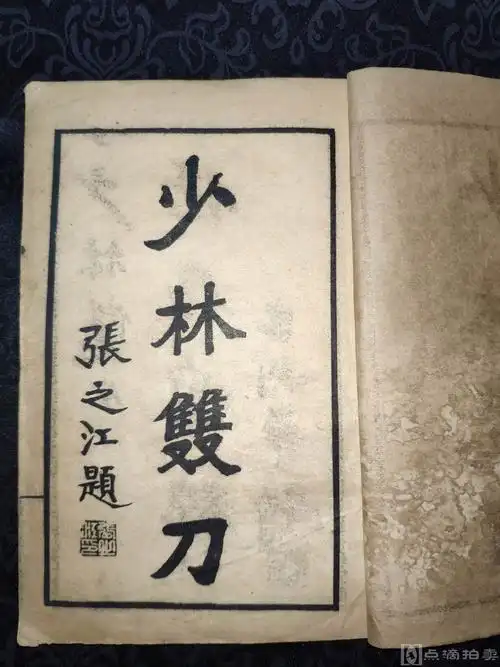 少林雙刀
張之江題
点滴拍卖